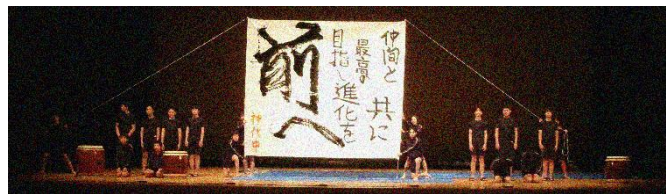 仲間と
共に
最高
目指し進化を
前へ